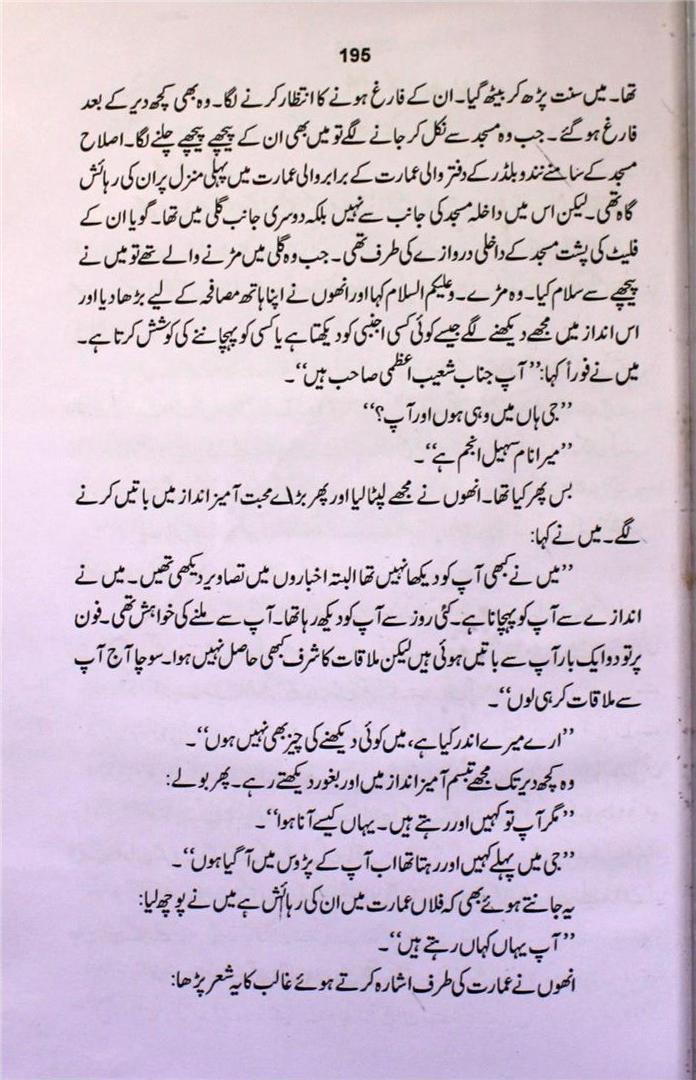 195
تھا۔ میں سنت پڑھ کر بیٹھ گیا۔ ان کے فارغ ہونے کا انتظار کرنے لگا۔ وہ بھی کچھ دیر کے بعد
فارغ ہو گئے۔ جب وہ مسجد سے نکل کر جانے لگے تو میں بھی ان کے پیچھے پیچھے چلنے لگا۔ اصلاح
مسجد کے سامنے نندو بلڈر کے دفتر والی عمارت کے برابر والی عمارت میں پہلی منزل پر ان کی رہائش
گاہ تھی۔ لیکن اس میں داخلہ مسجد کی جانب سے نہیں بلکہ دوسری جانب گلی میں تھا۔ گویا ان کے
فلیٹ کی پشت مسجد کے داخلی دروازے کی طرف تھی۔ جب وہ گلی میں مڑنے والے تھے تو میں نے
پیچھے سے سلام کیا۔ وہ مڑے۔ وعلیکم السلام کہا اور انھوں نے اپنا ہاتھ مصافحہ کے لیے بڑھا دیا اور
اس انداز میں مجھے دیکھنے لگے جیسے کوئی کسی اجنبی کو دیکھتا ہے یا کسی کو پہچاننے کی کوشش کرتا ہے۔
میں نے فوراً کہا: ’’آپ جناب شعیب اعظمی صاحب ہیں‘‘۔
’’جی ہاں میں وہی ہوں اور آپ؟‘‘
’’میرا نام سہیل انجم ہے‘‘۔
بس پھر کیا تھا۔ انھوں نے مجھے لپٹا لیا اور پھر بڑے محبت آمیز انداز میں باتیں کرنے
لگے۔ میں نے کہا:
’’میں نے کبھی آپ کو دیکھا نہیں تھا البتہ اخباروں میں تصاویر دیکھی تھیں۔ میں نے
اندازے سے آپ کو پہچانا ہے۔ کئی روز سے آپ کو دیکھ رہا تھا۔ آپ سے ملنے کی خواہش تھی۔ فون
پر تو دو ایک بار آپ سے باتیں ہوئی ہیں لیکن ملاقات کا شرف کبھی حاصل نہیں ہوا۔ سوچا آج آپ
سے ملاقات کر ہی لوں‘‘۔
’’ارے میرے اندر کیا ہے، میں کوئی دیکھنے کی چیز بھی نہیں ہوں‘‘۔
وہ کچھ دیر تک مجھے تبسم آمیز انداز میں اور بغور دیکھتے رہے۔ پھر بولے:
’’مگر آپ تو کہیں اور رہتے ہیں۔ یہاں کیسے آنا ہوا‘‘۔
’’جی میں پہلے کہیں اور رہتا تھا اب آپ کے پڑوس میں آ گیا ہوں‘‘۔
یہ جانتے ہوئے بھی کہ فلاں عمارت میں ان کی رہائش ہے میں نے پوچھ لیا:
’’آپ یہاں کہاں رہتے ہیں‘‘۔
انھوں نے عمارت کی طرف اشارہ کرتے ہوئے غالب کا یہ شعر پڑھا: